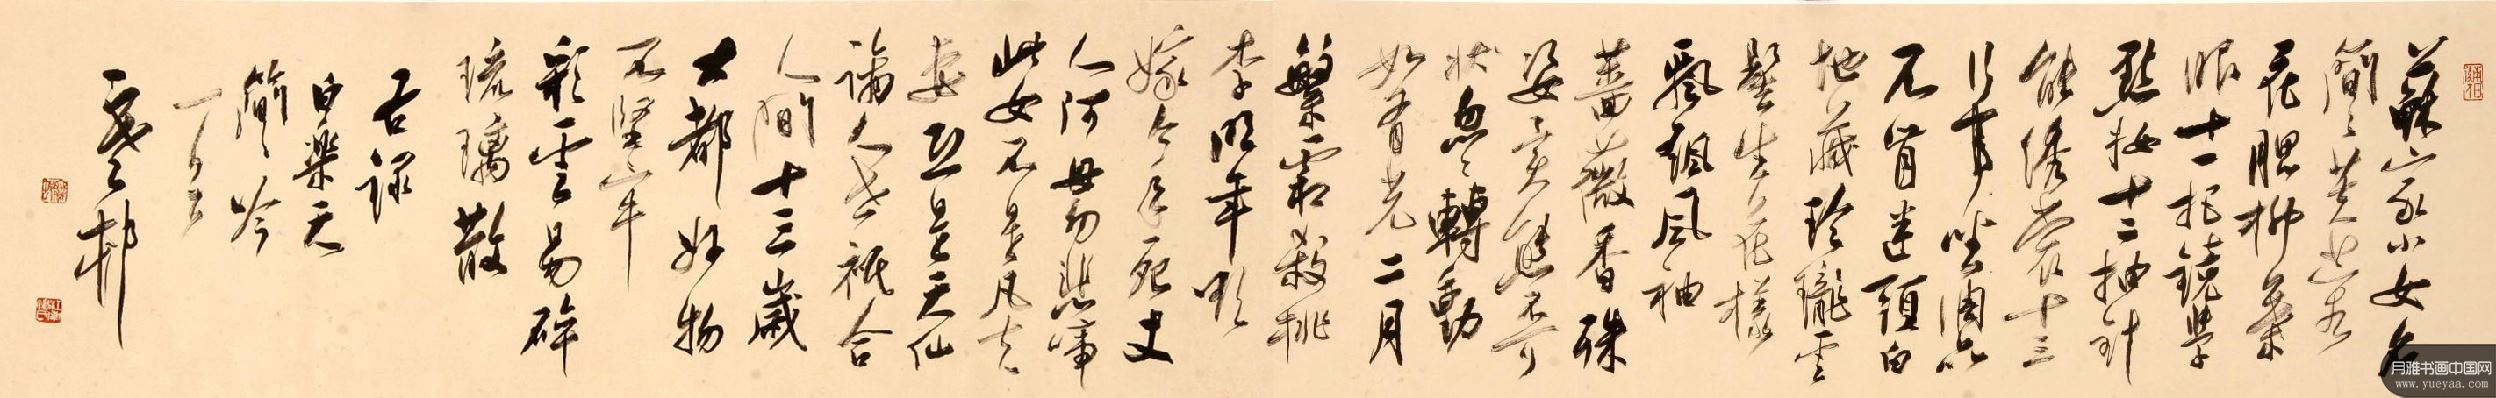 蘇家小女名
簡簡芙蓉
花腮柳葉
眼十一把鏡學
點妝十二抽針
能繡裳十三
行事坐調品
不肯迷頭白
地藏玲瓏雲
髻生花樣
飄颻風袖
薔薇香殊
姿異態不可
狀忽忽轉動
如有光二月
繁霜殺桃
李明年欲
嫁今年死丈
人阿母勿悲啼
此女不是凡夫
妻恐是天仙
謫人世祗合
人間十三歲
大都好物
不堅牢
彩雲易碎
琉璃散
右錄
白樂天
簡簡吟
丁亥
月雅书画中国网
www.yueyaa.com